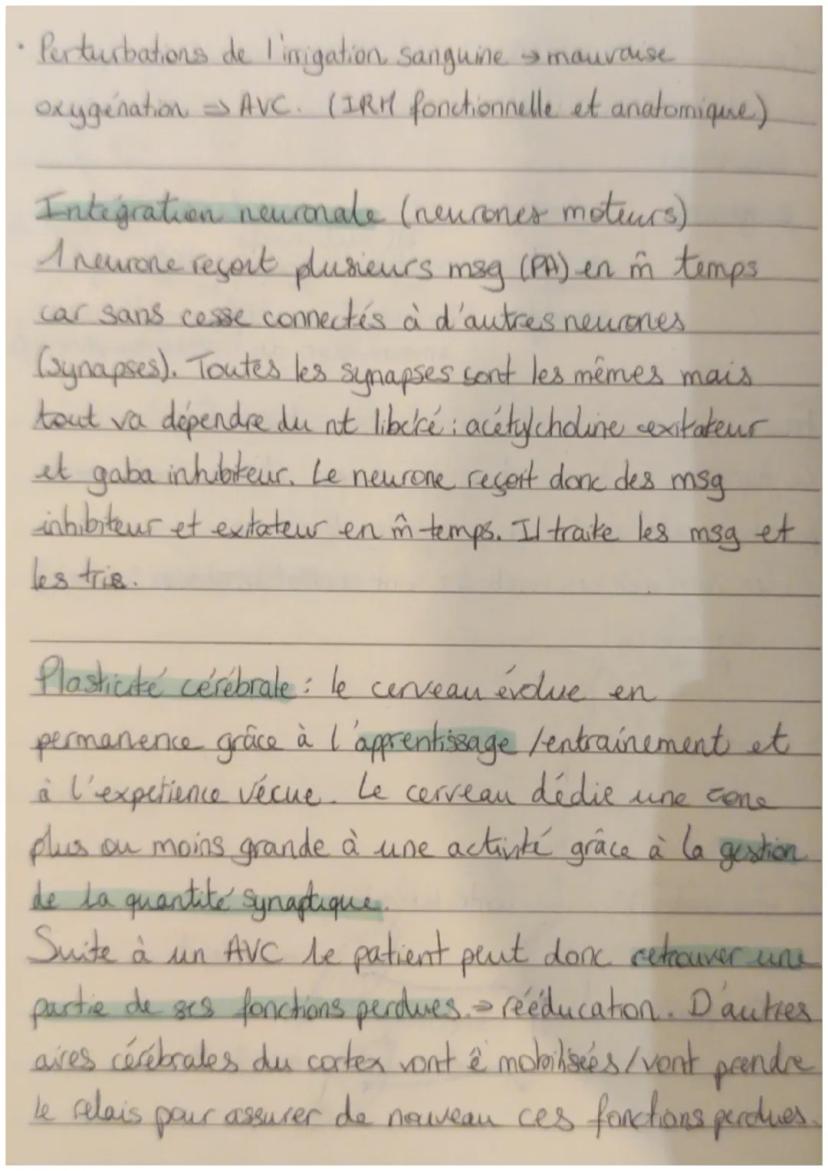 • Perturbations de l'irrigation sanguine → mauvaise
oxygénation ⇒ AVC. (IRM fonctionnelle et anatomique)
Intégration neuronale (neurones moteurs)
1 neurone reçoit plusieurs msg (PA) en m̂ temps
car sans cesse connectés à d'autres neurones
(synapses). Toutes les synapses sont les mêmes mais
tout va dépendre du nt libéré : acétylcholine exitateur
et gaba inhibiteur. Le neurone reçoit donc des msg
inhibiteur et exitateur en m̂ temps. Il traite les msg et
les trie.
Plasticité cérébrale : le cerveau évolue en
permanence grâce à l'apprentissage / entrainement et
à l'expérience vécue. Le cerveau dédie une zone
plus ou moins grande à une activité grâce à la gestion
de la quantité synaptique.
Suite à un AVC le patient peut donc retrouver une
partie de ses fonctions perdues. ⇒ rééducation. D'autres
aires cérébrales du cortex vont ê mobilisées / vont prendre
le relais pour assurer de nouveau ces fonctions perdues.